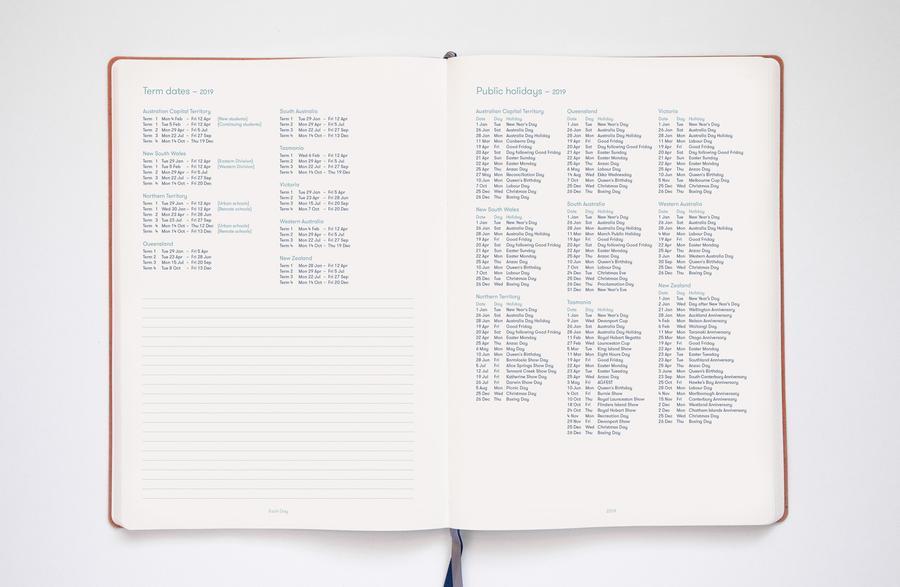 Term dates – 2019
Australian Capital Territory
Term 1 Mon 4 Feb – Fri 12 Apr (New students)
Term 1 Tue 5 Feb – Fri 12 Apr (Continuing students)
Term 2 Mon 29 Apr – Fri 5 Jul
Term 3 Mon 22 Jul – Fri 27 Sep
Term 4 Mon 14 Oct – Thu 19 Dec
New South Wales
Term 1 Tue 29 Jan – Fri 12 Apr (Eastern Division)
Term 1 Tue 5 Feb – Fri 12 Apr (Western Division)
Term 2 Mon 29 Apr – Fri 5 Jul
Term 3 Mon 22 Jul – Fri 27 Sep
Term 4 Mon 14 Oct – Fri 20 Dec
Northern Territory
Term 1 Tue 29 Jan – Fri 12 Apr (Urban schools)
Term 1 Wed 30 Jan – Fri 12 Apr (Remote schools)
Term 2 Mon 23 Apr – Fri 28 Jun
Term 3 Tue 23 Jul – Fri 27 Sep
Term 4 Mon 14 Oct – Thu 12 Dec (Urban schools)
Term 4 Mon 14 Oct – Fri 13 Dec (Remote schools)
Queensland
Term 1 Tue 29 Jan – Fri 5 Apr
Term 2 Tue 23 Apr – Fri 28 Jun
Term 3 Mon 15 Jul – Fri 20 Sep
Term 4 Tue 8 Oct – Fri 13 Dec
South Australia
Term 1 Tue 29 Jan – Fri 12 Apr
Term 2 Mon 29 Apr – Fri 5 Jul
Term 3 Mon 22 Jul – Fri 27 Sep
Term 4 Mon 14 Oct – Fri 13 Dec
Tasmania
Term 1 Wed 6 Feb – Fri 12 Apr
Term 2 Mon 29 Apr – Fri 5 Jul
Term 3 Mon 22 Jul – Fri 27 Sep
Term 4 Mon 14 Oct – Thu 19 Dec
Victoria
Term 1 Tue 29 Jan – Fri 5 Apr
Term 2 Tue 23 Apr – Fri 28 Jun
Term 3 Mon 15 Jul – Fri 20 Sep
Term 4 Mon 7 Oct – Fri 20 Dec
Western Australia
Term 1 Mon 4 Feb – Fri 12 Apr
Term 2 Mon 29 Apr – Fri 5 Jul
Term 3 Mon 22 Jul – Fri 27 Sep
Term 4 Mon 14 Oct – Thu 19 Dec
New Zealand
Term 1 Mon 28 Jan – Fri 12 Apr
Term 2 Mon 29 Apr – Fri 5 Jul
Term 3 Mon 22 Jul – Fri 27 Sep
Term 4 Mon 14 Oct – Fri 20 Dec
Each Day
Public holidays – 2019
Australian Capital Territory
Date Day Holiday
1 Jan Tue New Year's Day
26 Jan Sat Australia Day
28 Jan Mon Australia Day Holiday
11 Mar Mon Canberra Day
19 Apr Fri Good Friday
20 Apr Sat Day following Good Friday
21 Apr Sun Easter Sunday
22 Apr Mon Easter Monday
25 Apr Thu Anzac Day
27 May Mon Reconciliation Day
10 Jun Mon Queen's Birthday
7 Oct Mon Labour Day
25 Dec Wed Christmas Day
26 Dec Thu Boxing Day
New South Wales
Date Day Holiday
1 Jan Tue New Year's Day
26 Jan Sat Australia Day
28 Jan Mon Australia Day Holiday
19 Apr Fri Good Friday
20 Apr Sat Day following Good Friday
21 Apr Sun Easter Sunday
22 Apr Mon Easter Monday
25 Apr Thu Anzac Day
10 Jun Mon Queen's Birthday
7 Oct Mon Labour Day
25 Dec Wed Christmas Day
26 Dec Thu Boxing Day
Northern Territory
Date Day Holiday
1 Jan Tue New Year's Day
26 Jan Sat Australia Day
28 Jan Mon Australia Day Holiday
19 Apr Fri Good Friday
20 Apr Sat Day following Good Friday
22 Apr Mon Easter Monday
25 Apr Thu Anzac Day
6 May Mon May Day
10 Jun Mon Queen's Birthday
28 Jun Fri Borroloola Show Day
5 Jul Fri Alice Springs Show Day
12 Jul Fri Tennant Creek Show Day
19 Jul Fri Katherine Show Day
26 Jul Fri Darwin Show Day
5 Aug Mon Picnic Day
25 Dec Wed Christmas Day
26 Dec Thu Boxing Day
Queensland
Date Day Holiday
1 Jan Tue New Year's Day
26 Jan Sat Australia Day
28 Jan Mon Australia Day Holiday
19 Apr Fri Good Friday
20 Apr Sat Day following Good Friday
21 Apr Sun Easter Sunday
22 Apr Mon Easter Monday
25 Apr Thu Anzac Day
6 May Mon Labour Day
14 Aug Wed Ekka Wednesday
7 Oct Mon Queen's Birthday
25 Dec Wed Christmas Day
26 Dec Thu Boxing Day
South Australia
Date Day Holiday
1 Jan Tue New Year's Day
26 Jan Sat Australia Day
28 Jan Mon Australia Day Holiday
11 Mar Mon March Public Holiday
19 Apr Fri Good Friday
20 Apr Sat Day following Good Friday
22 Apr Mon Easter Monday
25 Apr Thu Anzac Day
10 Jun Mon Queen's Birthday
7 Oct Mon Labour Day
24 Dec Tue Christmas Eve
25 Dec Wed Christmas Day
26 Dec Thu Proclamation Day
31 Dec Mon New Year's Eve
Tasmania
Date Day Holiday
1 Jan Tue New Year's Day
9 Jan Wed Devonport Cup
26 Jan Sat Australia Day
28 Jan Mon Australia Day Holiday
11 Feb Mon Royal Hobart Regatta
27 Feb Wed Launceston Cup
5 Mar Tue King Island Show
11 Mar Mon Eight Hours Day
19 Apr Fri Good Friday
22 Apr Mon Easter Monday
23 Apr Tue Easter Tuesday
25 Apr Wed Anzac Day
3 May Fri AGFEST
10 Jun Mon Queen's Birthday
4 Oct Fri Burnie Show
10 Oct Thu Royal Launceston Show
18 Oct Fri Flinders Island Show
24 Oct Thu Royal Hobart Show
4 Nov Mon Recreation Day
29 Nov Fri Devonport Show
25 Dec Wed Christmas Day
26 Dec Thu Boxing Day
Victoria
Date Day Holiday
1 Jan Tue New Year's Day
26 Jan Sat Australia Day
28 Jan Mon Australia Day Holiday
11 Mar Mon Labour Day
19 Apr Fri Good Friday
20 Apr Sat Day following Good Friday
21 Apr Sun Easter Sunday
22 Apr Mon Easter Monday
25 Apr Thu Anzac Day
10 Jun Mon Queen's Birthday
5 Nov Tue Melbourne Cup Day
25 Dec Wed Christmas Day
26 Dec Thu Boxing Day
Western Australia
Date Day Holiday
1 Jan Tue New Year's Day
26 Jan Sat Australia Day
28 Jan Mon Australia Day Holiday
4 Mar Mon Labour Day
19 Apr Fri Good Friday
22 Apr Mon Easter Monday
25 Apr Thu Anzac Day
3 Jun Mon Western Australia Day
30 Sep Mon Queen's Birthday
25 Dec Wed Christmas Day
26 Dec Thu Boxing Day
New Zealand
Date Day Holiday
1 Jan Tue New Year's Day
2 Jan Wed Day after New Year's Day
21 Jan Mon Wellington Anniversary
28 Jan Mon Auckland Anniversary
4 Feb Mon Nelson Anniversary
6 Feb Wed Waitangi Day
11 Mar Mon Taranaki Anniversary
25 Mar Mon Otago Anniversary
19 Apr Fri Good Friday
22 Apr Mon Easter Monday
23 Apr Tue Easter Tuesday
23 Apr Tue Southland Anniversary
25 Apr Thu Anzac Day
3 June Mon Queen's Birthday
23 Sep Mon South Canterbury Anniversary
25 Oct Fri Hawke's Bay Anniversary
28 Oct Mon Labour Day
4 Nov Mon Marlborough Anniversary
15 Nov Fri Canterbury Anniversary
2 Dec Mon Westland Anniversary
2 Dec Mon Chatham Islands Anniversary
25 Dec Wed Christmas Day
26 Dec Thu Boxing Day
2019